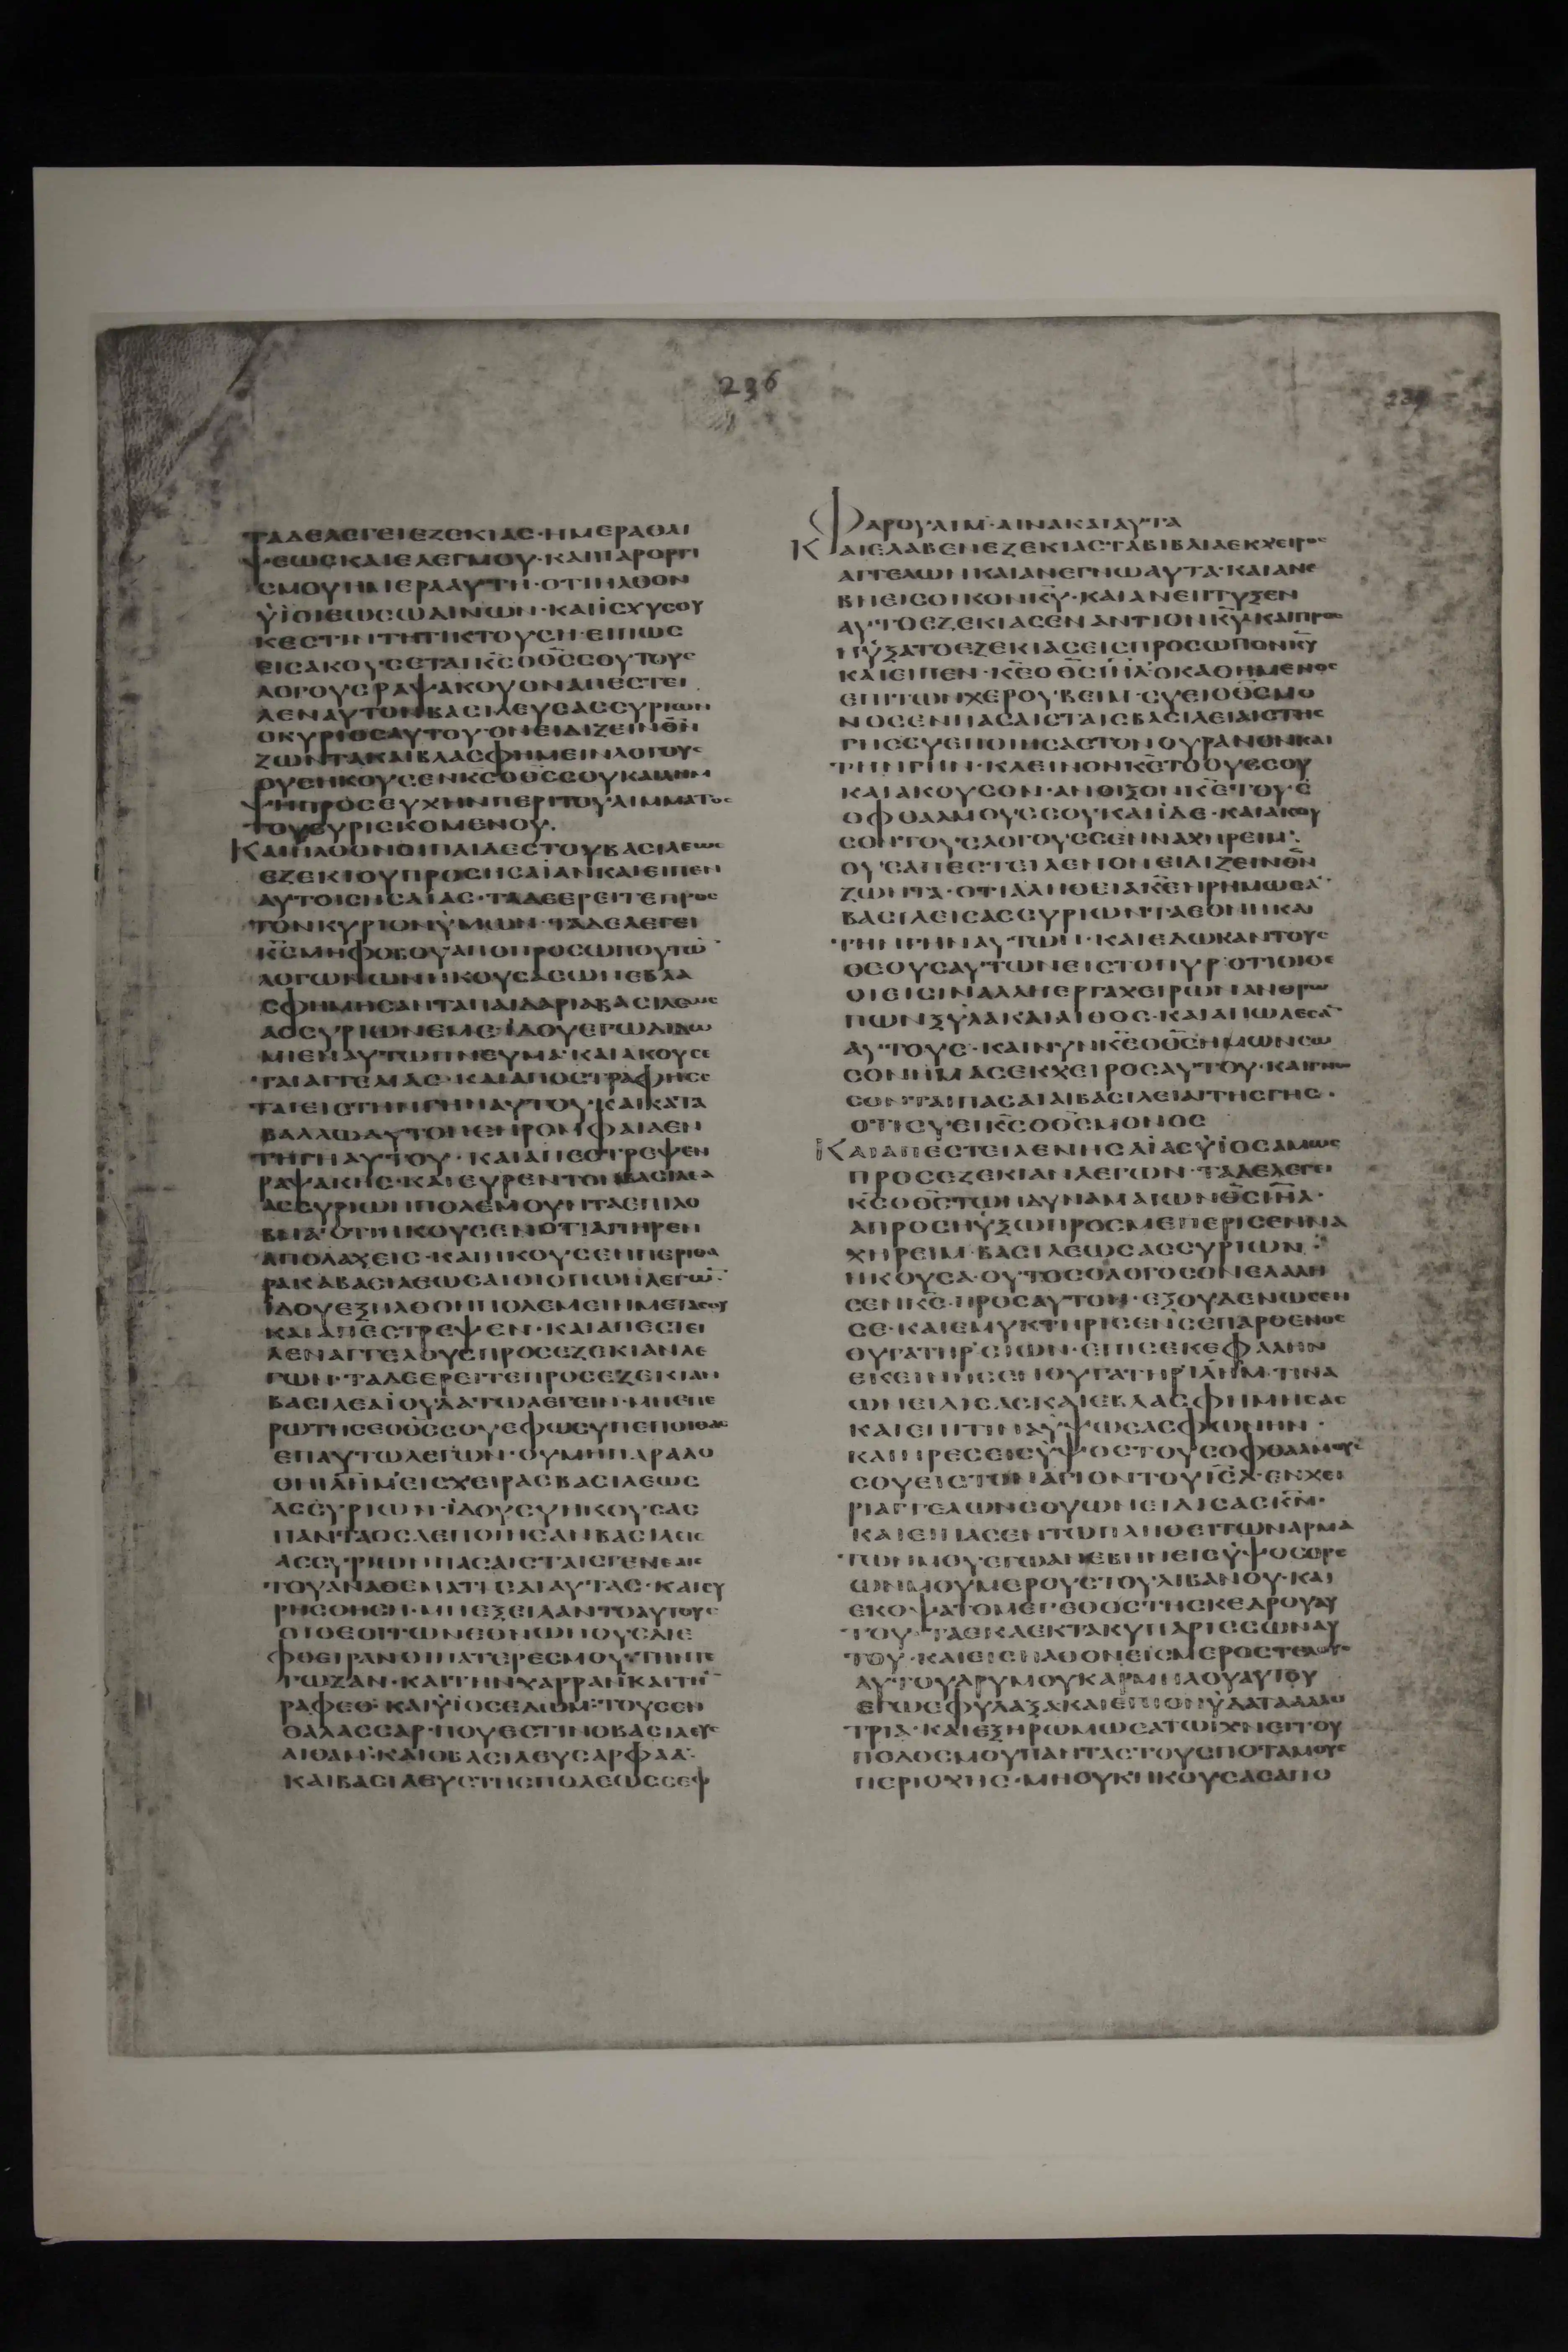 236
ΤΑΔΕΛΕΓΕΙΕΖΕΚΙΑΣ·ΗΜΕΡΑΘΛΙ
ΨΕΩΣΚΑΙΕΛΕΓΜΟΥ·ΚΑΙΠΑΡΟΡΓΙ
ΣΜΟΥΗΜΕΡΑΑΥΤΗ·ΟΤΙΗΛΘΟΝ
ΥΪΟΙΕΩΣΩΔΙΝΩΝ·ΚΑΙΪΣΧΥΣΟΥ
ΚΕΣΤΙΝΤΗΤΙΚΤΟΥΣΗ·ΕΙΠΩΣ
ΕΙΣΑΚΟΥΣΕΤΑΙΚ̅Σ̅ΟΘ̅Σ̅ΣΟΥΤΟΥΣ
ΛΟΓΟΥΣΡΑΨΑΚΟΥΟΝΑΠΕΣΤΕΙ
ΛΕΝΑΥΤΟΝΒΑΣΙΛΕΥΣΑΣΣΥΡΙΩΝ
ΟΚΥΡΙΟΣΑΥΤΟΥ·ΟΝΕΙΔΙΖΕΙΝΘ̅Ν̅
ΖΩΝΤΑΚΑΙΒΛΑΣΦΗΜΕΙΝΛΟΓΟΥΣ
ΟΥΣΗΚΟΥΣΕΝΚ̅Σ̅ΟΘ̅Σ̅ΣΟΥΚΑΙΛΗΜ
ΨΗΠΡΟΣΕΥΧΗΝΠΕΡΙΤΟΥΛΙΜΜΑΤΟΣ
ΤΟΥΕΥΡΙΣΚΟΜΕΝΟΥ·
ΚΑΙΗΛΘΟΝΟΙΠΑΙΔΕΣΤΟΥΒΑΣΙΛΕΩΣ
ΕΖΕΚΙΟΥΠΡΟΣΗΣΑΪΑΝΚΑΙΕΙΠΕΝ
ΑΥΤΟΙΣΗΣΑΙΑΣ·ΤΑΔΕΕΡΕΙΤΕΠΡΟΣ
ΤΟΝΚΥΡΙΟΝΥΜΩΝ·ΤΑΔΕΛΕΓΕΙ
Κ̅Σ̅ΜΗΦΟΒΟΥΑΠΟΠΡΟΣΩΠΟΥΤΩ̅
ΛΟΓΩΝΩΝΗΚΟΥΣΑΣΩΝΕΒΛΑ
ΣΦΗΜΗΣΑΝΤΑΠΑΙΔΑΡΙΑΒΑΣΙΛΕΩΣ
ΑΣΣΥΡΙΩΝΕΜΕ·ΪΔΟΥΕΓΩΔΙΔΩ
ΜΙΕΝΑΥΤΩΠΝΕΥΜΑ·ΚΑΙΑΚΟΥΣΕ
ΤΑΙΑΓΓΕΛΙΑΣ·ΚΑΙΑΠΟΣΤΡΑΦΗΣΕ
ΤΑΙΕΙΣΤΗΝΓΗΝΑΥΤΟΥ·ΚΑΙΚΑΤΑ
ΒΑΛΛΩΑΥΤΟΝΕΝΡΟΜΦΑΙΑΕΝ
ΤΗΓΗΑΥΤΟΥ·ΚΑΙΑΠΕΣΤΡΕΨΕΝ
ΡΑΨΑΚΗΣ·ΚΑΙΕΥΡΕΝΤΟΝΒΑΣΙΛΕΑ
ΑΣΣΥΡΙΩΝΠΟΛΕΜΟΥΝΤΑΕΠΙΛΟ
ΒΝΑ·ΟΤΙΗΚΟΥΣΕΝΟΤΙΑΠΗΡΕΝ
ΑΠΟΛΑΧΕΙΣ·ΚΑΙΗΚΟΥΣΕΝΠΕΡΙΘΑ
ΡΑΚΑΒΑΣΙΛΕΩΣΑΙΘΙΟΠΩΝΛΕΓΩ̅·
ΪΔΟΥΕΞΗΛΘΟΝΠΟΛΕΜΕΙΝΜΕΤΑΣΟΥ
ΚΑΙΑΠΕΣΤΡΕΨΕΝ·ΚΑΙΑΠΕΣΤΕΙ
ΛΕΝΑΓΓΕΛΟΥΣΠΡΟΣΕΖΕΚΙΑΝΛΕ
ΓΩΝ·ΤΑΔΕΕΡΕΙΤΕΠΡΟΣΕΖΕΚΙΑΝ
ΒΑΣΙΛΕΑΪΟΥΔΑΤΩΛΕΓΕΙΝ·ΜΗΕΠΕ
ΡΩΤΗΣΕΟΘ̅Σ̅ΣΟΥΕΦΩΣΥΠΕΠΟΙΘΑΣ
ΕΠΑΥΤΩΛΕΓΩΝ·ΟΥΜΗΠΑΡΑΔΟ
ΘΗΙΛ̅Η̅Μ̅ΕΙΣΧΕΙΡΑΣΒΑΣΙΛΕΩΣ
ΑΣΣΥΡΙΩΝ·ΪΔΟΥΣΥΗΚΟΥΣΑΣ
ΠΑΝΤΑΟΣΑΕΠΟΙΗΣΑΝΒΑΣΙΛΕΙΣ
ΑΣΣΥΡΙΩΝΠΑΣΑΙΣΤΑΙΣΓΕΝΕΑΙΣ
ΤΟΥΑΝΑΘΕΜΑΤΙΣΑΙΑΥΤΑΣ·ΚΑΙΣΥ
ΡΗΣΘΗΣΗ·ΜΗΕΞΕΙΛΑΝΤΟΑΥΤΟΥΣ
ΟΙΘΕΟΙΤΩΝΕΘΝΩΝΟΥΣΔΙΕ
ΦΘΕΙΡΑΝΟΙΠΑΤΕΡΕΣΜΟΥ·ΤΗΝΤΕ
ΓΩΖΑΝ·ΚΑΙΤΗΝΧΑΡΡΑΝΚΑΙΤΗ̅
ΡΑΦΕΘ·ΚΑΙΥΪΟΣΕΔΩΜ·ΤΟΥΣΕΝ
ΘΑΛΑΣΣΑΡ·ΠΟΥΕΣΤΙΝΟΒΑΣΙΛΕΥΣ
ΑΙΘΑΜ·ΚΑΙΟΒΑΣΙΛΕΥΣΑΡΦΑΔ·
ΚΑΙΒΑΣΙΛΕΥΣΤΗΣΠΟΛΕΩΣΣΕΦ
ΦΑΡΟΥΑΙΜ·ΑΙΝΑΚΑΙΑΥΤΑ
ΚΑΙΕΛΑΒΕΝΕΖΕΚΙΑΣΤΑΒΙΒΛΙΑΕΚΧΕΙΡΟΣ
ΑΓΓΕΛΩΝΚΑΙΑΝΕΓΝΩΑΥΤΑ·ΚΑΙΑΝΕ
ΒΗΕΙΣΟΙΚΟΝΚ̅Υ̅·ΚΑΙΑΝΕΠΤΥΞΕΝ
ΑΥΤΟΕΖΕΚΙΑΣΕΝΑΝΤΙΟΝΚ̅Υ̅·ΚΑΙΠΡΟΣ
ΗΥΞΑΤΟΕΖΕΚΙΑΣΕΙΣΠΡΟΣΩΠΟΝΚ̅Υ̅
ΚΑΙΕΙΠΕΝ·Κ̅Ε̅ΟΘ̅Σ̅Ι̅Η̅Λ̅ΟΚΑΘΗΜΕΝΟΣ
ΕΠΙΤΩΝΧΕΡΟΥΒΕΙΜ·ΣΥΕΙΟΘ̅Σ̅ΜΟ
ΝΟΣΕΝΠΑΣΑΙΣΤΑΙΣΒΑΣΙΛΕΙΑΙΣΤΗΣ
ΓΗΣΣΥΕΠΟΙΗΣΑΣΤΟΝΟΥΡΑΝΟΝΚΑΙ
ΤΗΝΓΗΝ·ΚΛΕΙΝΟΝΚ̅Ε̅ΤΟΟΥΣΣΟΥ
ΚΑΙΑΚΟΥΣΟΝ·ΑΝΟΙΞΟΝΚ̅Ε̅ΤΟΥΣ
ΟΦΘΑΛΜΟΥΣΣΟΥΚΑΙΪΔΕ·ΚΑΙΑΚΟΥ
ΣΟΝΤΟΥΣΛΟΓΟΥΣΣΕΝΝΑΧΗΡΕΙΜ·
ΟΥΣΑΠΕΣΤΕΙΛΕΝΟΝΕΙΔΙΖΕΙΝΘ̅Ν̅
ΖΩΝΤΑ·ΟΤΙΑΛΗΘΕΙΑΚ̅Ε̅ΗΡΗΜΩΣΑ̅
ΒΑΣΙΛΕΙΣΑΣΣΥΡΙΩΝΤΑΕΘΝΗΚΑΙ
ΤΗΝΓΗΝΑΥΤΩΝ·ΚΑΙΕΔΩΚΑΝΤΟΥΣ
ΘΕΟΥΣΑΥΤΩΝΕΙΣΤΟΠΥΡ·ΟΤΙΟΥΘΕ
ΟΙΕΙΣΙΝΑΛΛΗΕΡΓΑΧΕΙΡΩΝΑΝΘΡΩ
ΠΩΝΞΥΛΑΚΑΙΛΙΘΟΣ·ΚΑΙΑΠΩΛΕΣΑ̅
ΑΥΤΟΥΣ·ΚΑΙΝΥΝΚ̅Ε̅ΟΘ̅Σ̅ΗΜΩΝΣΩ
ΣΟΝΗΜΑΣΕΚΧΕΙΡΟΣΑΥΤΟΥ·ΚΑΙΓΝΩ
ΣΟΝΤΑΙΠΑΣΑΙΑΙΒΑΣΙΛΕΙΑΙΤΗΣΓΗΣ·
ΟΤΙΣΥΕΙΚ̅Σ̅ΟΘ̅Σ̅ΜΟΝΟΣ
ΚΑΙΑΠΕΣΤΕΙΛΕΝΗΣΑΪΑΣΥΪΟΣΑΜΩΣ
ΠΡΟΣΕΖΕΚΙΑΝΛΕΓΩΝ·ΤΑΔΕΛΕΓΕΙ
Κ̅Σ̅ΟΘ̅Σ̅ΤΩΝΔΥΝΑΜΑΙΩΝΘ̅Σ̅Ι̅Η̅Λ̅·
ΑΠΡΟΣΗΥΞΩΠΡΟΣΜΕΠΕΡΙΣΕΝΝΑ
ΧΗΡΕΙΜ·ΒΑΣΙΛΕΩΣΑΣΣΥΡΙΩΝ·
ΗΚΟΥΣΑ·ΟΥΤΟΣΟΛΟΓΟΣΟΝΕΛΑΛΗ
ΣΕΝΚ̅Σ̅·ΠΡΟΣΑΥΤΟΝ·ΕΞΟΥΔΕΝΩΣΕΝ
ΣΕ·ΚΑΙΕΜΥΚΤΗΡΙΣΕΝΣΕΠΑΡΘΕΝΟΣ
ΘΥΓΑΤΗΡΣΙΩΝ·ΕΠΙΣΕΚΕΦΑΛΗΝ
ΕΚΕΙΝΗΣΕΝΘΥΓΑΤΗΡΙΛ̅Η̅Μ̅·ΤΙΝΑ
ΩΝΕΙΔΙΣΑΣΚΑΙΕΒΛΑΣΦΗΜΗΣΑΣ
ΚΑΙΕΠΙΤΙΝΑΥΨΩΣΑΣΦΩΝΗΝ·
ΚΑΙΗΡΕΣΕΙΣΥΨΟΣΤΟΥΣΟΦΘΑΛΜΟΥΣ
ΣΟΥΕΙΣΤΟΝΑΓΙΟΝΤΟΥΙ̅Σ̅Λ̅·ΕΝΧΕΙ
ΡΙΑΓΓΕΛΩΝΣΟΥΩΝΕΙΔΙΣΑΣΚ̅Ν̅·
ΚΑΙΕΙΠΑΣΕΝΤΩΠΛΗΘΕΙΤΩΝΑΡΜΑ
ΤΩΝΜΟΥΕΓΩΑΝΕΒΗΝΕΙΣΥΨΟΣΟΡΕ
ΩΝΜΟΥΜΕΡΟΥΣΤΟΥΛΙΒΑΝΟΥ·ΚΑΙ
ΕΚΟΨΑΤΟΜΕΓΕΘΟΣΤΗΣΚΕΔΡΟΥΑΥ
ΤΟΥ·ΤΑΕΚΛΕΚΤΑΚΥΠΑΡΙΣΣΩΝΑΥ
ΤΟΥ·ΚΑΙΕΙΣΗΛΘΟΝΕΙΣΜΕΡΟΣΤΕΛΟΥΣ
ΑΥΤΟΥΔΡΥΜΟΥΚΑΡΜΗΛΟΥΑΥΤΟΥ
ΕΓΩΕΦΥΛΑΞΑΚΑΙΕΠΙΟΝΥΔΑΤΑΑΛΛΟ
ΤΡΙΑ·ΚΑΙΕΞΗΡΩΜΩΣΑΤΩΪΧΝΕΙΤΟΥ
ΠΟΔΟΣΜΟΥΠΑΝΤΑΣΤΟΥΣΠΟΤΑΜΟΥΣ
ΠΕΡΙΟΧΗΣ·ΜΗΟΥΚΗΚΟΥΣΑΣΑΠΟ